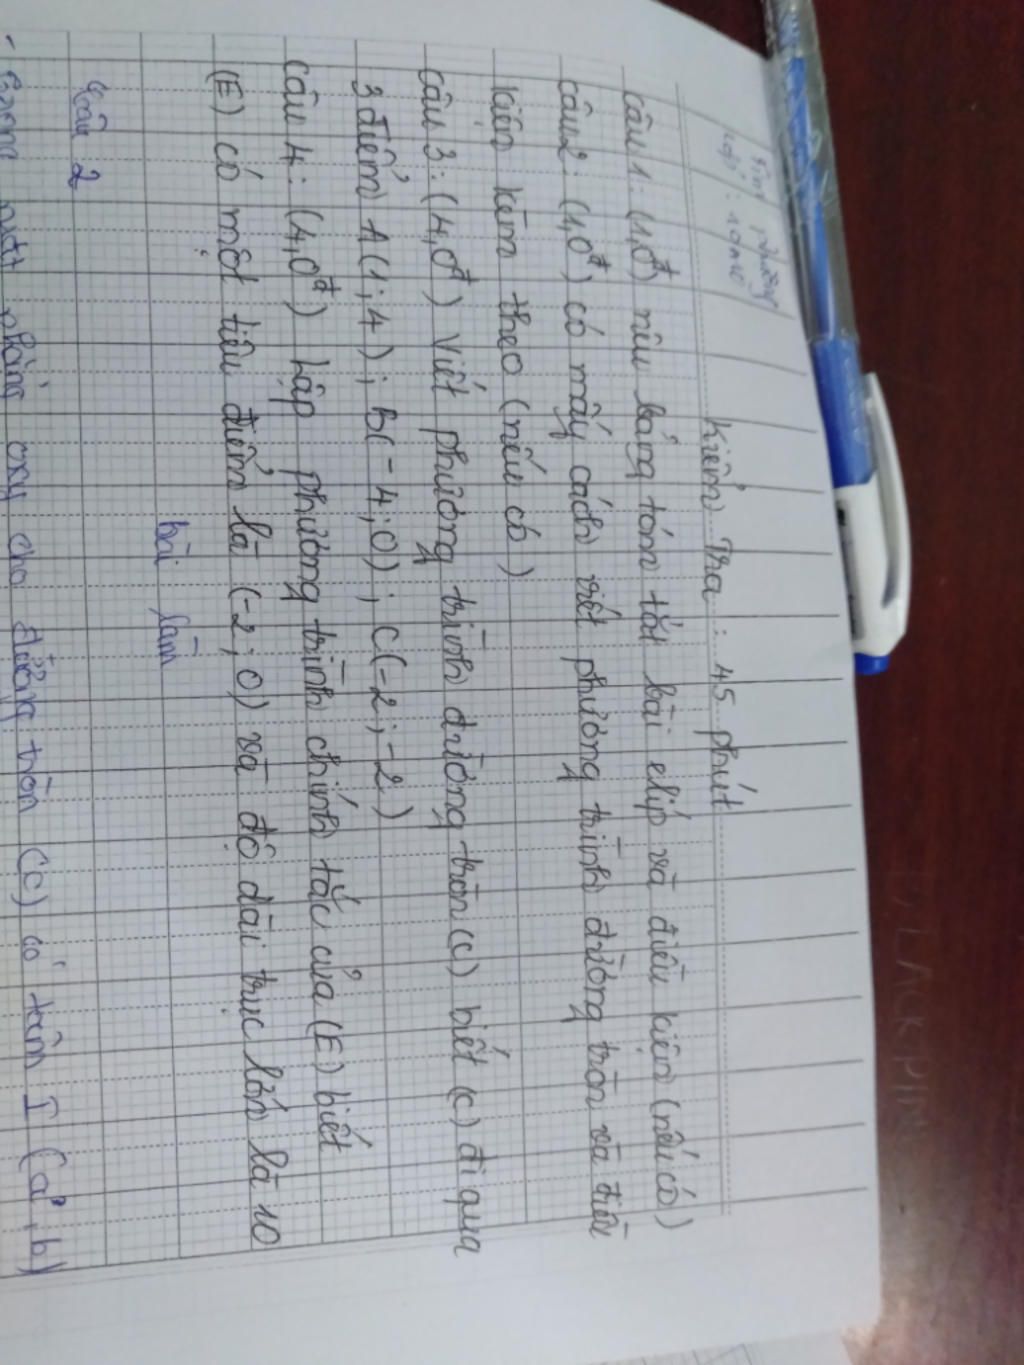 Lớp: 10A10
Kiểm Tra: 45 phút
câu 1: (1,0đ) nêu bảng tóm tắt bài elip và điều kiện (nếu có)
câu 2: (1,0đ) có mấy cách viết phương trình đường tròn và điều
kiện kèm theo (nếu có)
câu 3: (4,0đ) Viết phương trình đường tròn (C) biết (C) đi qua
3 điểm A(1;4); B(-4;0); C(-2;-2)
câu 4: (4,0đ) Lập phương trình chính tắc của (E) biết
(E) có một tiêu điểm là (-2;0) và độ dài trục lớn là 10
bài làm
Câu 2
mặt phẳng oxy cho đường tròn (C) có tâm I (a;b)